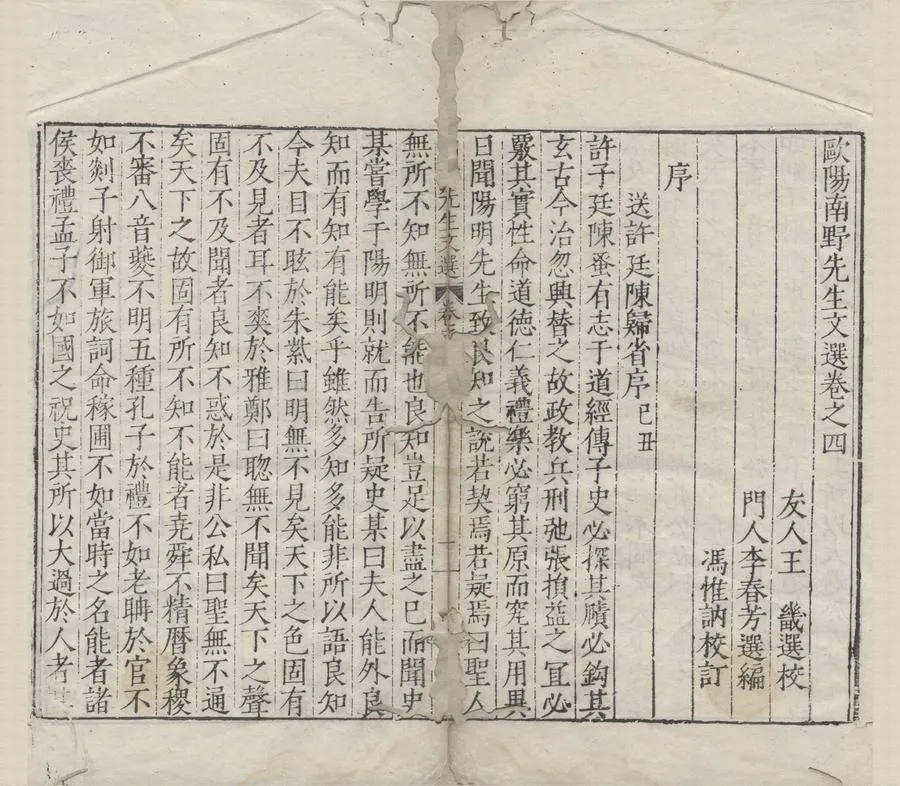 歐陽南野先生文選卷之四
友人王畿選校
門人李春芳選編
馮惟訥校訂
序
送許廷陳歸省序己丑
許子廷陳蚤有志于道經傳子史必探其賾必鈎其
玄古今治忽興替之故政教兵刑弛張損益之冝必
覈其實性命道德仁義禮樂必窮其原而究其用異
日聞陽明先生致良知之說若契焉若疑焉曰聖人
先生文選
無所不知無所不能也良知豈足以盡之已而聞史
某嘗學于陽明則就而告所疑史某曰夫人能外良
知而有知有能矣乎雖然多知多能非所以語良知
今夫目不眩於朱紫曰明無不見矣天下之色固有
不及見者耳不爽於雅鄭曰聦無不聞矣天下之聲
固有不及聞者良知不惑於是非公私曰聖無不通
矣天下之故固有所不知不能者堯舜不精曆象稷
不審八音夔不明五種孔子於禮不如老聃於官不
如剡子射御軍旅詞命稼圃不如當時之名能者諸
侯喪禮孟子不如國之祝史其所以大過於人者